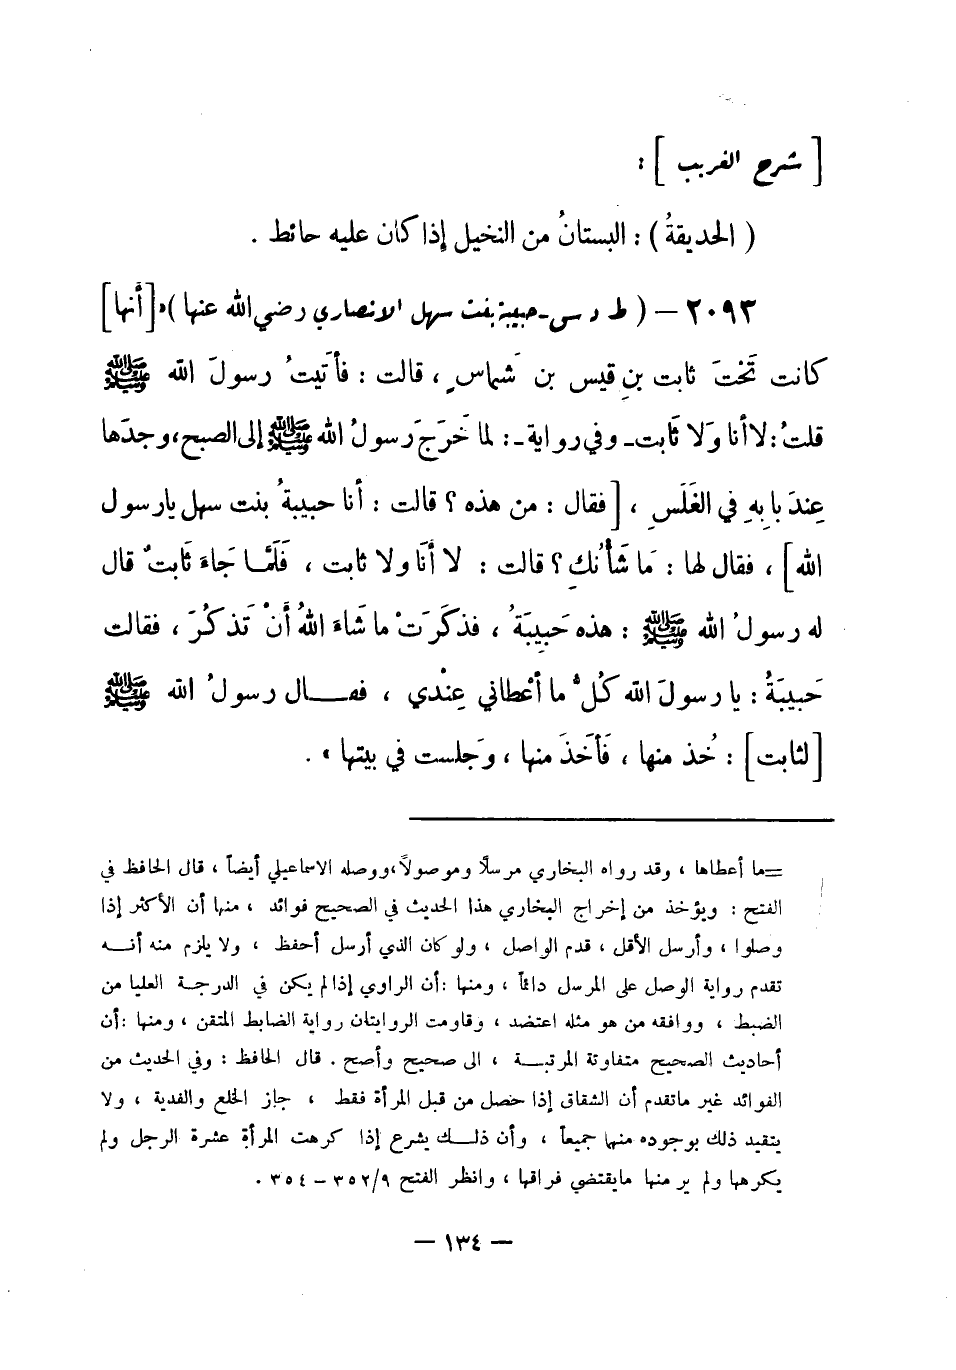 [ شرح الغريب ] :
( الحديقةُ ) : البستانُ من النخيل إذا كان عليه حائط .
٢٠٩٣ – ( ط د س - حبيبة بنت سهل الانصاري رضي الله عنها ) « [ أنها ]
كانت تَحْتَ ثابت بنِ قيس بن شماسٍ ، قالت : فأتيتُ رسولَ الله ﷺ
قلتُ : لا أنا وَلا ثابت ـ وفي رواية ـ : لما خَرَجَ رسولُ الله ﷺ إلى الصبح ، وجدَها
عِندَ بابِهِ في الغَلَسِ ، [ فقال : من هذه ؟ قالت : أنا حبيبةُ بنت سهل يارسول
الله ] ، فقال لها : مَا شَأْنُكِ ؟ قالت : لا أنَا ولا ثابت ، فَلَمَّا جَاءَ ثَابتٌ قال
له رسولُ الله ﷺ : هذه حَبِيبَةُ ، فذكَرَتْ ما شَاءَ اللهُ أنْ تَذكُرَ ، فقالت
حَبيبَةُ : يا رسولَ الله كُلُّ ما أعْطاني عِنْدي ، فقـــال رسولُ الله ﷺ
[ لثابت ] : خُذ منها ، فَأخَذَ منها ، وَجلست في بيتها » .
= ما أعطاها ، وقد رواه البخاري مرسلًا وموصولًا ، ووصله الاسماعيلي أيضاً ، قال الحافظ في
الفتح : ويؤخذ من إخراج البخاري هذا الحديث في الصحيح فوائد ، منها أن الأكثر إذا
وصلوا ، وأرسل الأقل ، قدم الواصل ، ولو كان الذي أرسل أحفظ ، ولا يلزم منه أنــه
تقدم رواية الوصل على المرسل دائماً ، ومنها : أن الراوي إذا لم يكن في الدرجــة العليا من
الضبط ، ووافقه من هو مثله اعتضد ، وقاومت الروايتان رواية الضابط المتقن ، ومنها : أن
أحاديث الصحيح متفاوتة المرتبــة ، الى صحيح وأصح . قال الحافظ : وفي الحديث من
الفوائد غير ماتقدم أن الشقاق إذا حصل من قبل المرأة فقط ، جاز الخلع والفدية ، ولا
يتقيد ذلك بوجوده منها جميعاً ، وأن ذلــك يشرع إذا كرهت المرأة عشرة الرجل ولم
يكرهها ولم ير منها مايقتضي فراقها ، وانظر الفتح ٩/٣٥٢ – ٣٥٤ .
– ١٣٤ –